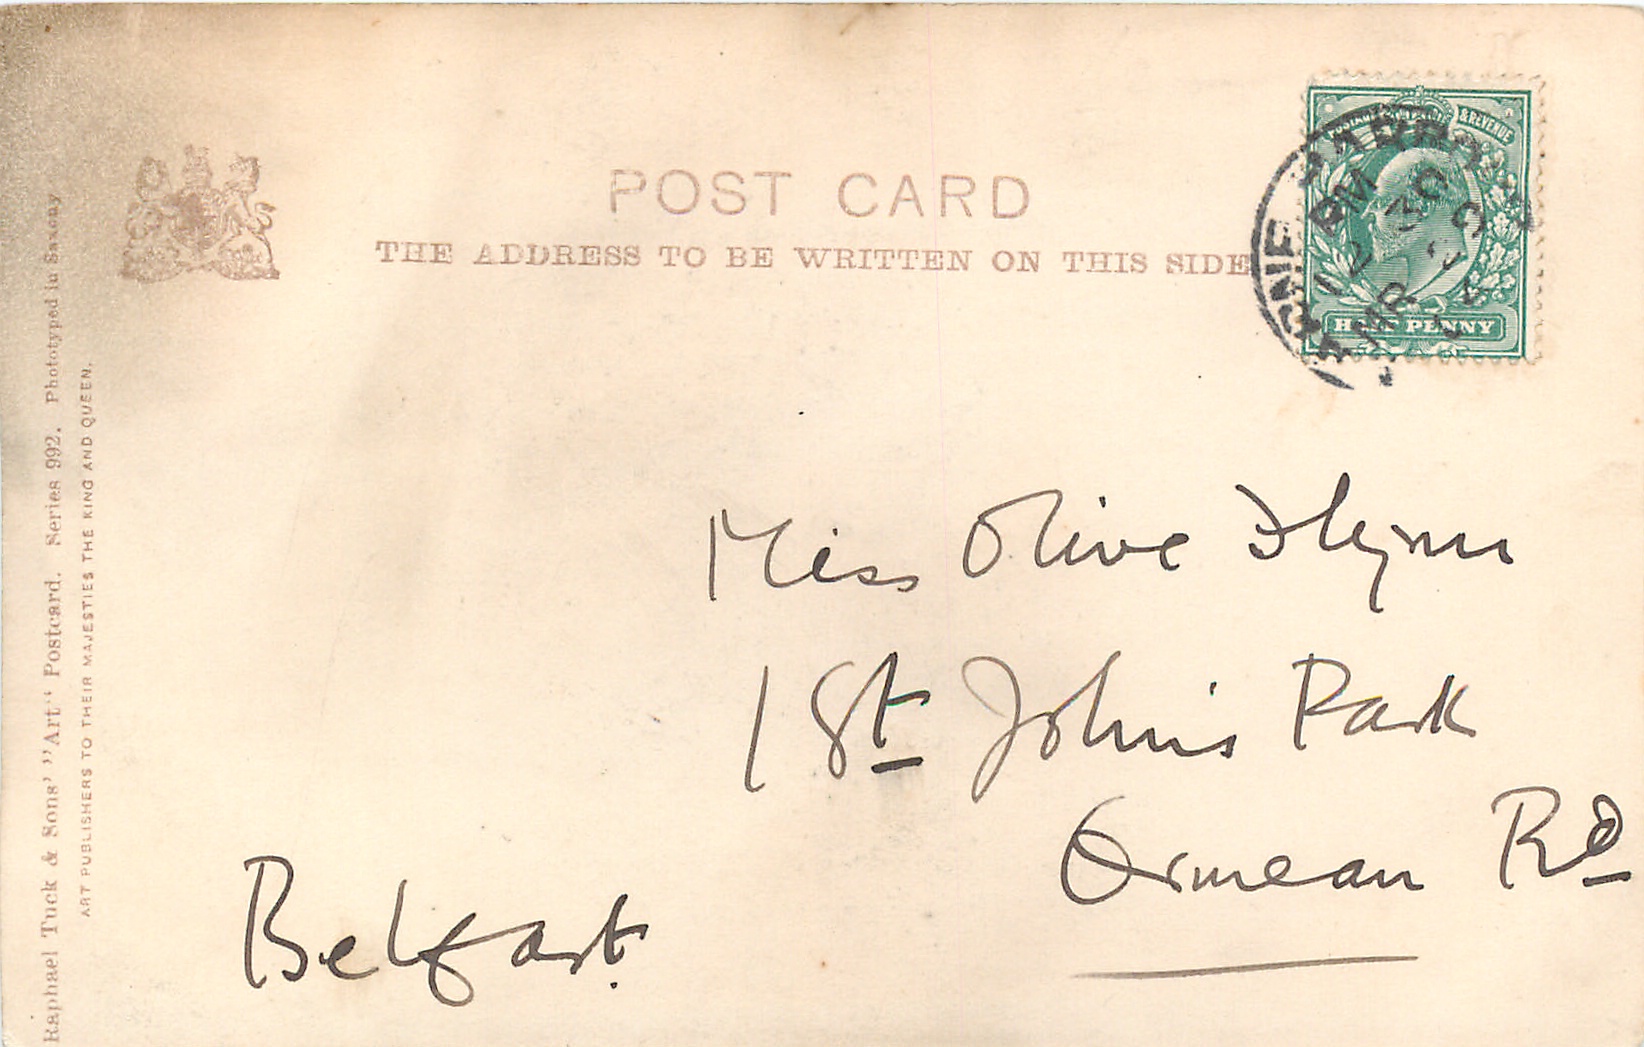 POST CARD
THE ADDRESS TO BE WRITTEN ON THIS SIDE
& REVENUE
HALF PENNY
PM
Miss Olive Flynn
1 St Johns Park
Ormeau Rd
Belfast.
Raphael Tuck & Sons' "Art" Postcard. Series 992. Phototyped in Saxony
ART PUBLISHERS TO THEIR MAJESTIES THE KING AND QUEEN.